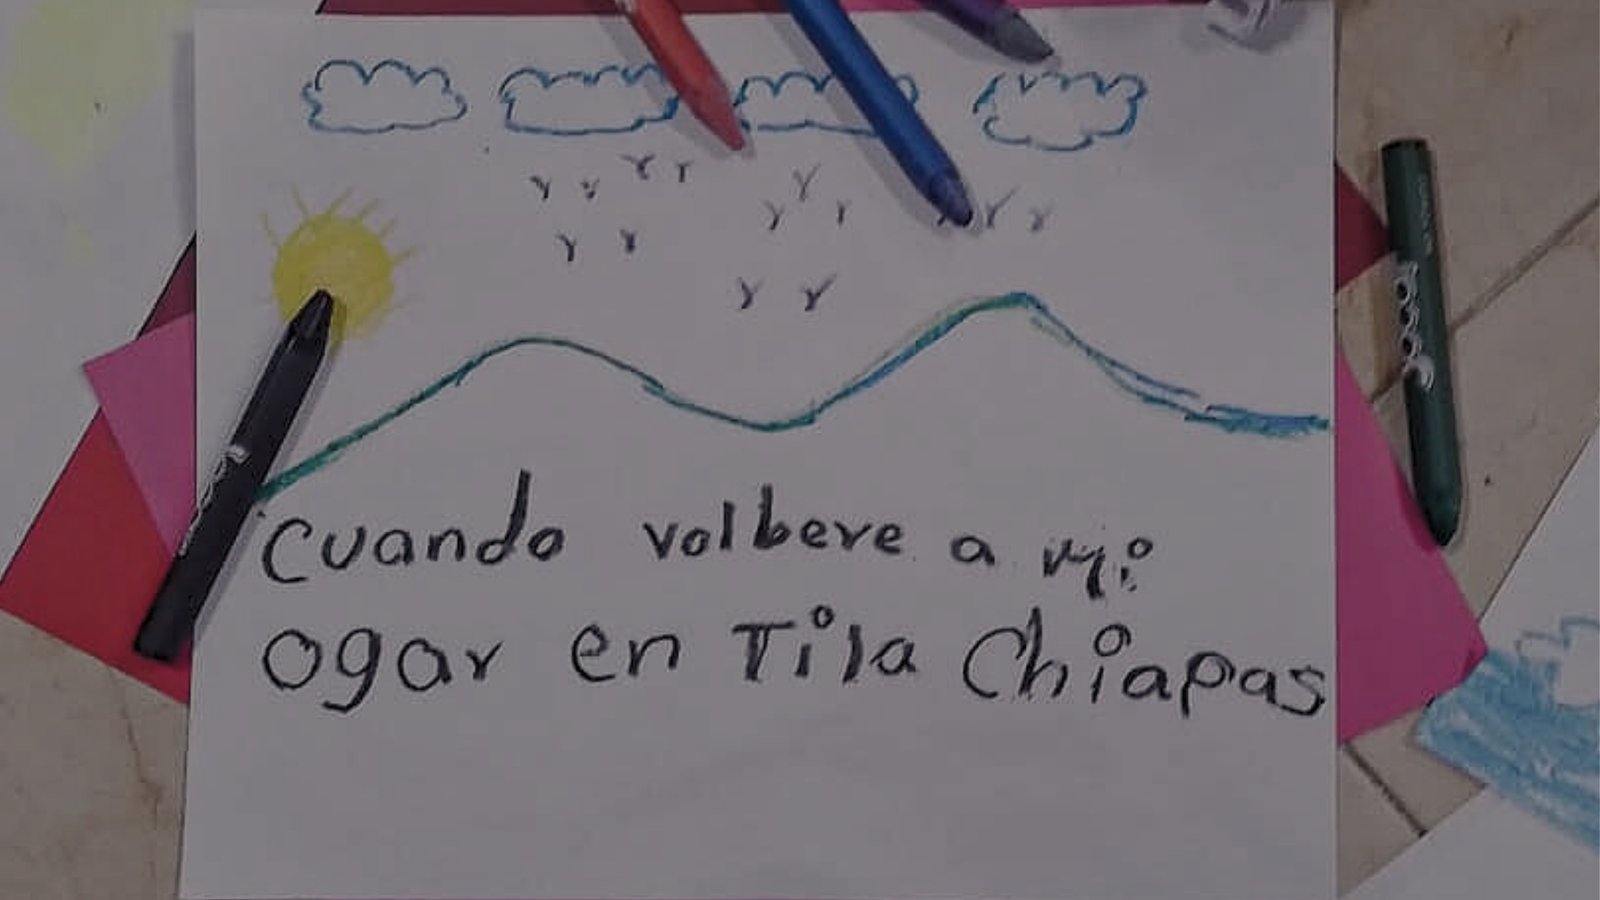 Cuando volbere a mi
ogar en Tila Chiapas